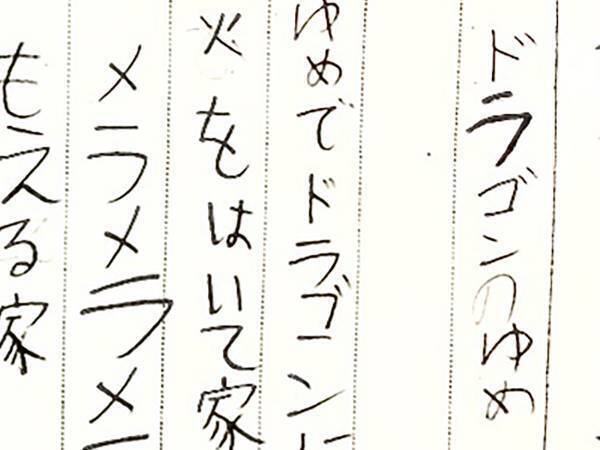 ドラゴンのゆめ
ゆめでドラゴン
火をはいて家
メラメラメ
もえる家